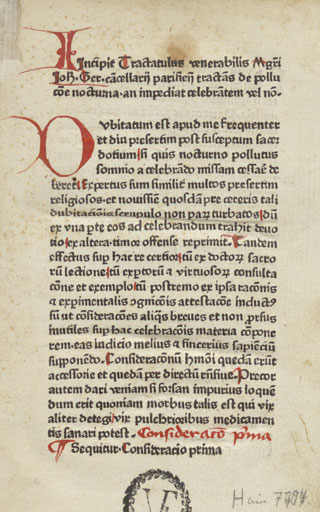 Incipit Tractatulus venerabilis Mgr̄i
Joh̄. Ger. cācellarij parisień tractās de pollu
cōe nocturna. an impediat celebrātem vel nō.
Dvbitatum est apud me frequenter
et diu presertim post susceptum sacer
dotium si quis nocturno pollutus
somnio a celebrādo missam cessare de
beret. Expertus sum simil'r multos presertim
religiosos. et nouissie quosdā p̄re ceteris tali
dubitacionis scrupulo non parū turbatos. dū
ex vna p̄te eos ad celebrandum trahit deuo
tio. ex altera. timor offense reprimit. Tandem
effectus sup hac re certior. tū ex doctorꝝ sacro
rū lectione. tū exp̄torū a virtuosorꝝ consulta
cōne et exemplo. tū postremo ex ipsa racōnis
& exp̄imentalis ognicōis attestacōe induct9
sū ut cōsideracōes aliq̄s breues et non prorsus
inutiles sup hac celebracōis materia compone
rem. eas iudicio melius & sincerius sapienciū
supponēdo. Consideracōnū hmōi quedā erūt
accessorie et quedā per directū r̄nsiue. Precor
autem dari veniam si forsan impurius loquē
dum erit quoniam morbus talis est qui vix
aliter detegi. vix pulchrioribus medicamen
tis sanari potest. Consideracō p̄ma
Sequitur. Consideracio prima
Hain 7797